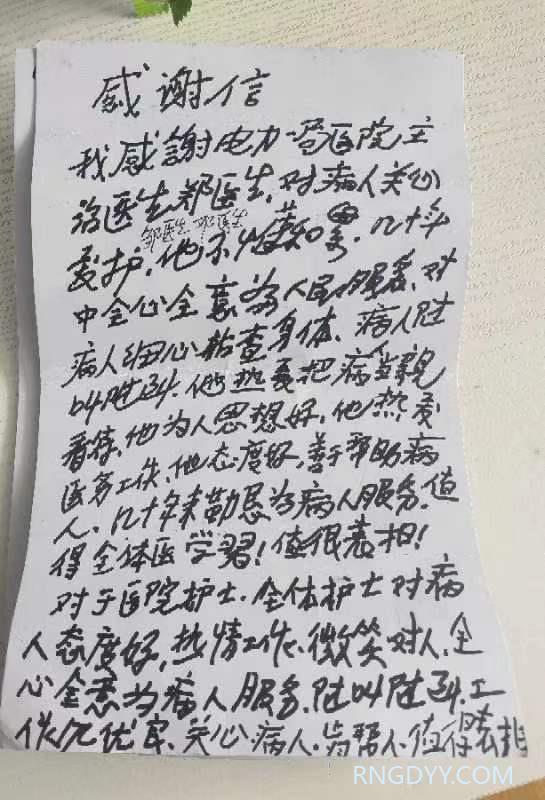 感谢信
我感謝电力 医院主
治医生郑医生,对病人关心
邹医生 邓医生
爱护,他不怕苦和累.几十年
中全心全意为人民服务,对
病人细心检查身体、病人随
叫随到.他热爱把病人当親
看待,他为人思想好,他热爱
医务工作,他态度好,善于帮助病
人.几十年来勤恳为病人服务.值
得全体医学習!值很表扬!
对于医院护士.全体护士对病
人态度好,热情工作、微笑对人,全
心全意为病人服务.随叫随到.工
作 优 、关心病人.肯帮人.值得表扬
RNGDYY.COM